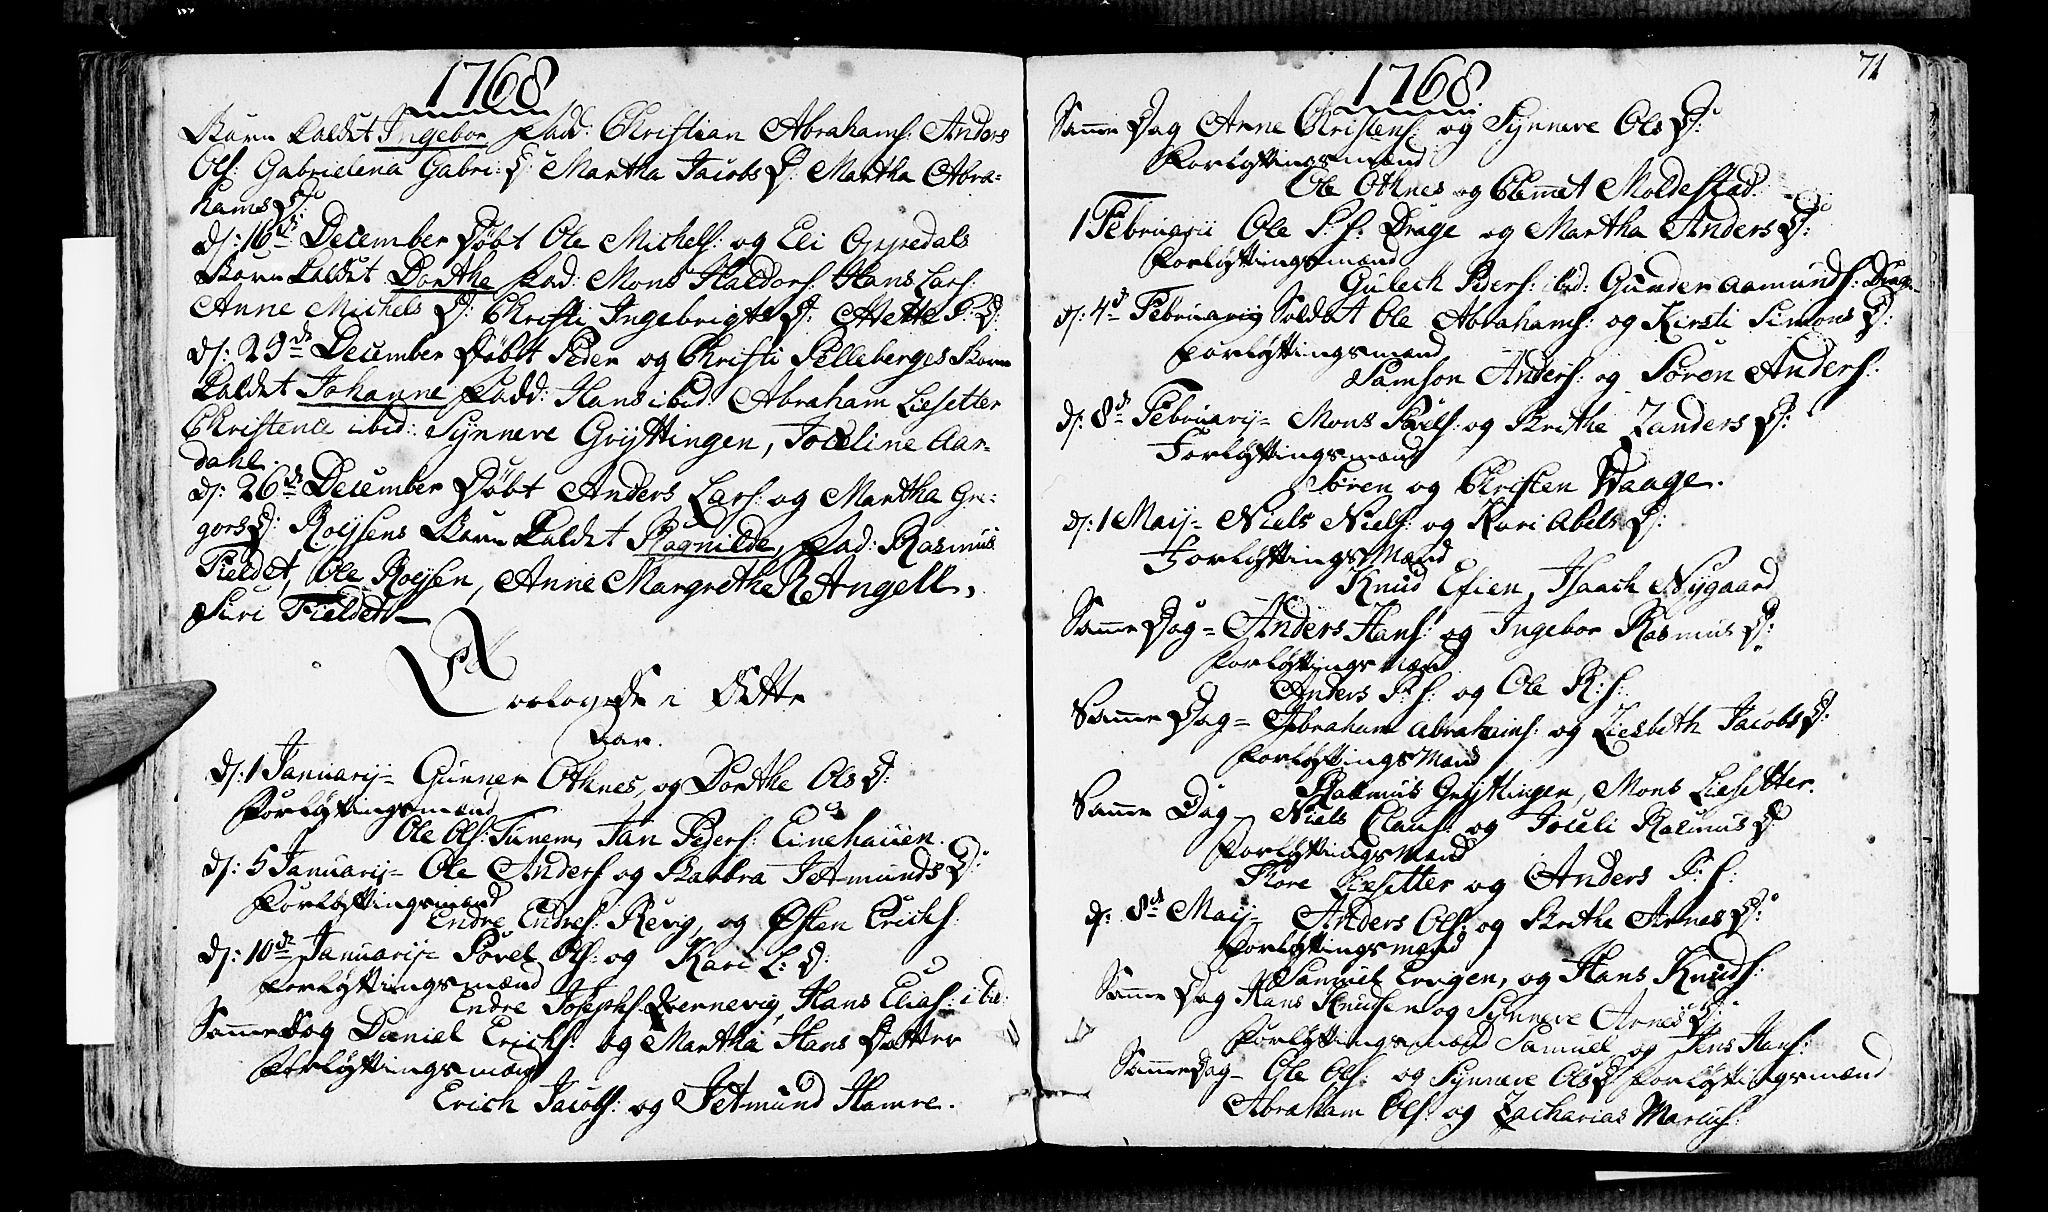 1768
Barn kaldet Ingebor Fadd: Christian Abrahams: Anders
Ols: Gabrielena Gabri: D: Martha Jacobs D: Martha Abra-
hams D:
d: 16de December Døbt Ole Michels: og Eli Oppedals
Barn kaldet Dorthe Fad: Mons Haldors: Hans Lars:
Anne Michels D: Christi Ingebrigts D: P: D:
d: 25de December Døbt Peder og Christi Pelleberges Barn
kaldet Johanne Fadd: Hans ibid: Abraham Liesetter
Christence ibid: Synneve Gryttingen, Joceline Aar-
dahl.
d: 26de December Døbt Anders Lars: og Martha Gre-
gors D: Røysens Barn kaldet Ragnilde, Fad: Rasmus
Fieldet, Ole Røysen, Anne Margrethe R Angell,
Siri Fieldet
Forlovede i Dette
Aar.
d: 1 Januarij= Gunner Othnes, og Dorthe Ols D:
Forløftningsmænd
Ole Ols: Tunem, Jan Peders: Einehauen.
d: 5 Januarij= Ole Anders: og Barbra Jetmunds D:
Forløftningsmænd
Endre Endres: Revig, og Østen Erichs:
d: 10de Januarij= Povel Ols: og Kari L: D:
Forløftningsmænd
Endre Josephs: Qvernevig, Hans Elias: ibid:
Samme Dag Daniel Erichs: og Martha Hans Datter
Forløftningsmænd
Erich Jacobs: og Jetmund Hamre.
71
1768
Samme Dag Arne Christens: og Synneve Ols D:
Forløftningsmænd
Ole Othnes og Clemet Moldestad.
1 Februarii Ole P: s: Drage og Martha Anders D:
Forløftningsmænd
Gulech Peders: ibid: Gunder Aamunds: Drage
d: 4de Februarij Soldat Ole Abrahams: og Kirsti Simons D:
Forløftningsmænd
Samson Anders: og Søren Anders:
d: 8de Februarij= Mons Povels: og Brithe Zanders D:
Forløftningsmænd
Søren og Christen Waage.
d: 1 Maij= Niels Niels: og Kari Abels D:
Forløftnings Mænd
Knud Efien, Isaach Nygaard
Samme Dag= Anders Hans: og Ingebor Rasmus D:
Forløftnings Mænd
Anders P: s: og Ole R: s:
Samme Dag= Abraham Abrahams: og Liesbeth Jacobs D:
Forløftnings Mænd
Rasmus Gryttingen, Mons Liesetter.
Samme Dag= Niels Claus: og Joceli Rasmus D
Forløftnings Mænd
Tore Liesetter og Anders P: s:
d: 8de Maij= Anders Ols: og Brithe Arnes D:
Forløftningsmænd
Samuel Ervigen, og Hans Knuds:
Samme Dag Hans Knudsen og Synneve Arnes D:
Forløftningsmænd Samuel og Jens Hans:
Samme Dag= Ole Ols: og Synneve Ols D Forløftningsmænd
Abraham Ols: og Zacharias Marcus: